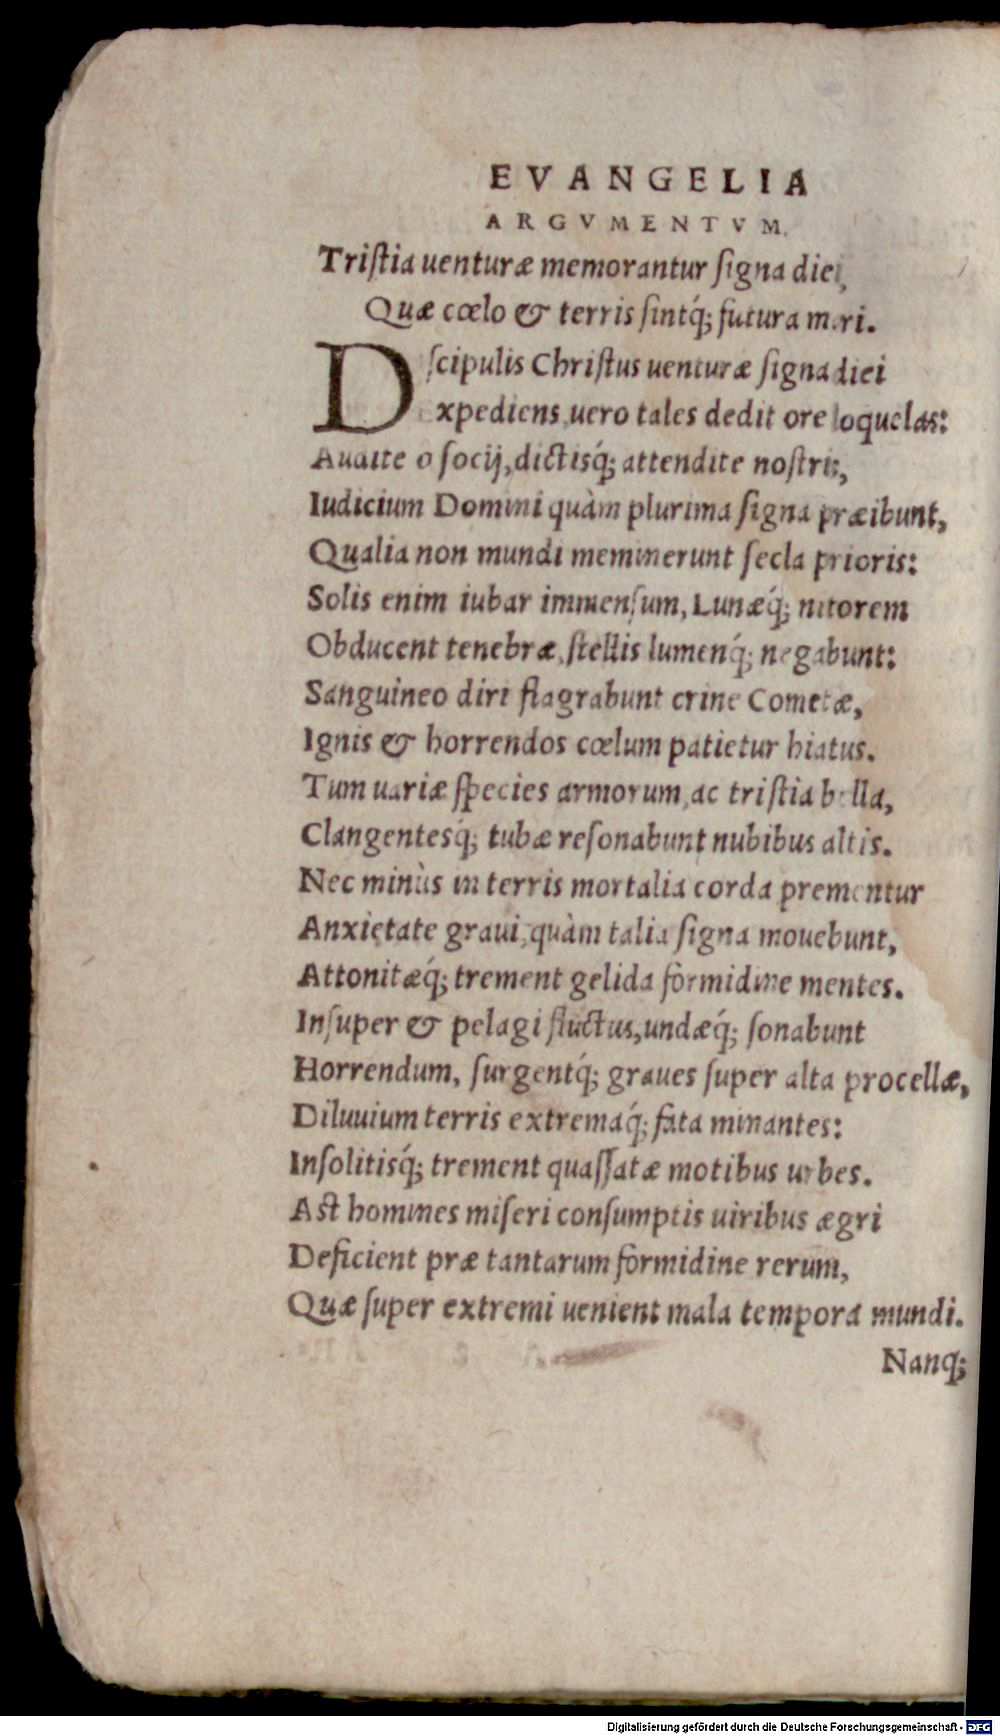 EVANGELIA
ARGVMENTVM.
Triſtia uenturæ memorantur ſigna diei,
Quæ cœlo & terris ſintq́; futura mari.
Dſcipulis Chriſtus uenturæ ſigna diei
Expediens, uero tales dedit ore loquelas:
Audite o ſocij, dictisq́; attendite noſtris,
Iudicium Domini quàm plurima ſigna præibunt,
Qualia non mundi meminerunt ſecla prioris:
Solis enim iubar immenſum, Lunæq́; nitorem
Obducent tenebræ, ſtellis lumenq́; negabunt:
Sanguineo diri flagrabunt crine Cometæ,
Ignis & horrendos cœlum patietur hiatus.
Tum uariæ ſpecies armorum, ac triſtia bella,
Clangentesq́; tubæ reſonabunt nubibus altis.
Nec minùs in terris mortalia corda prementur
Anxietate graui, quàm talia ſigna mouebunt,
Attonitæq́; trement gelida formidine mentes.
Inſuper & pelagi fluctus, undæq́; ſonabunt
Horrendum, ſurgentq́; graues ſuper alta procellæ,
Diluuium terris extremaq́; fata minantes:
Inſolitisq́; trement quaſſatæ motibus urbes.
Aſt homines miſeri conſumptis uiribus ægri
Deficient præ tantarum formidine rerum,
Quæ ſuper extremi uenient mala tempora mundi.
Nanq;
Digitalisierung gefördert durch die Deutsche Forschungsgemeinschaft - DFG